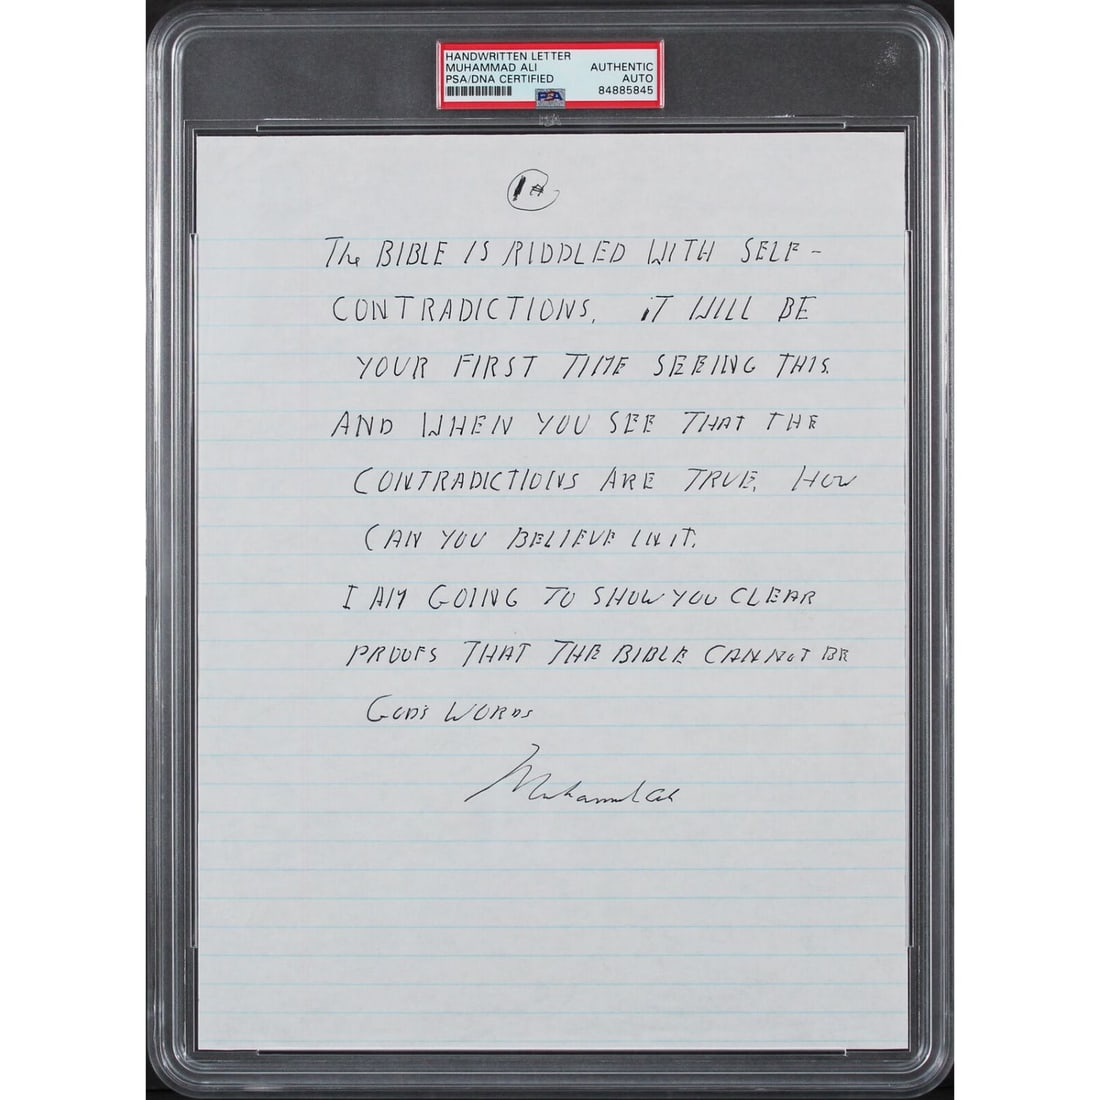 HANDWRITTEN LETTER
MUHAMMAD ALI
PSA/DNA CERTIFIED
AUTHENTIC
AUTO
84885845
PSA
The BIBLE IS RIDDLED WITH SELF-
CONTRADICTIONS. iT WILL BE
YOUR FIRST TIME SEEING THIS.
AND WHEN YOU SEE THAT THE
CONTRADICTIONS ARE TRUE. HOW
CAN YOU BELIEVE IN IT.
I AM GOING TO SHOW YOU CLEAR
PROOFS THAT THE BIBLE CANNOT BE
GOD'S WORDS
Muhammad Ali